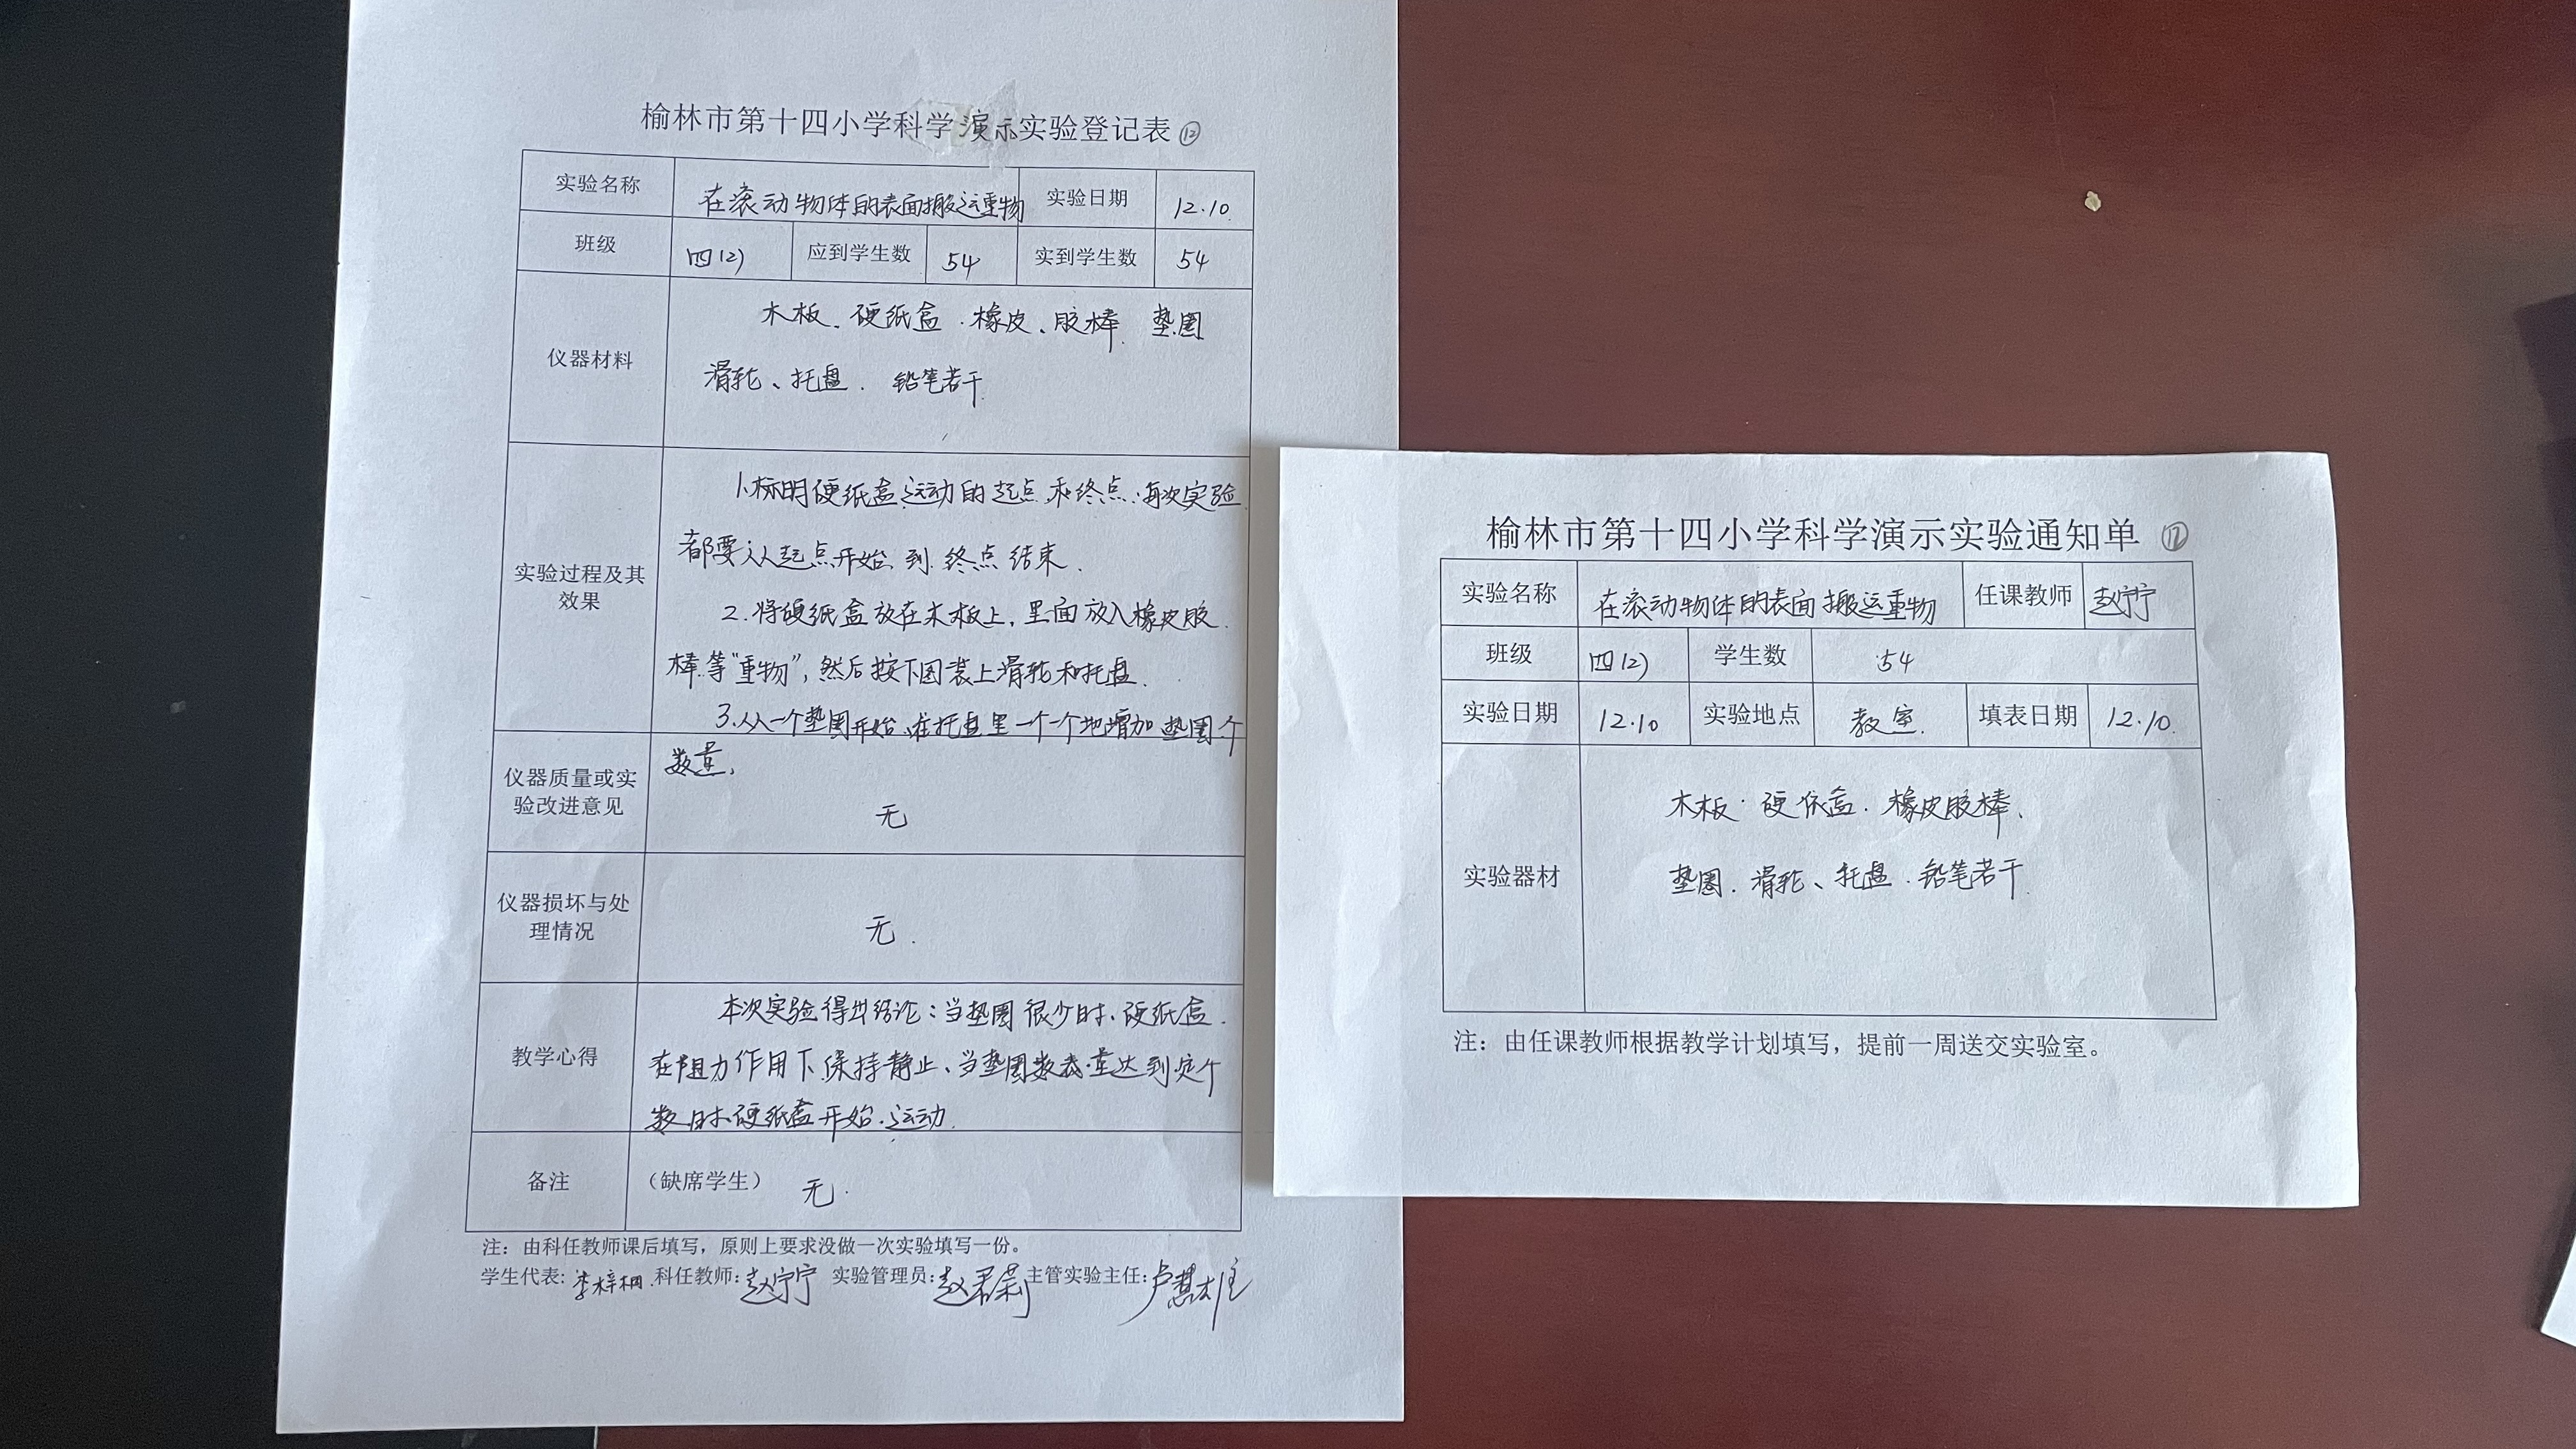 榆林市第十四小学科学演示实验登记表⑫
实验名称 在滚动物体的表面搬运重物 实验日期 12.10.
班级 四(2) 应到学生数 54 实到学生数 54
仪器材料
木板、硬纸盒.橡皮、胶棒.垫圈
滑轮、托盘.铅笔若干.
实验过程及其
效果
1.标明硬纸盒运动的起点和终点.每次实验
都要从起点开始到终点结束.
2.将硬纸盒放在木板上,里面放入橡皮胶
棒等"重物",然后按下图装上滑轮和托盘.
3.从一个垫圈开始,在托盘里一个一个地增加垫圈个
数量,
仪器质量或实
验改进意见
无
仪器损坏与处
理情况
无.
教学心得
本次实验得出结论:当垫圈很少时、硬纸盒.
在阻力作用下保持静止、当垫圈数量达到定个
数时硬纸盒开始运动.
备注 (缺席学生) 无.
注:由科任教师课后填写,原则上要求没做一次实验填写一份。
学生代表:李梓桐.科任教师:赵宁宁 实验管理员:赵 主管实验主任:卢慧雄
榆林市第十四小学科学演示实验通知单⑫
实验名称 在滚动物体的表面搬运重物 任课教师 赵宁宁
班级 四(2) 学生数 54
实验日期 12.10 实验地点 教室. 填表日期 12.10.
实验器材
木板.硬纸盒.橡皮胶棒.
垫圈.滑轮、托盘.铅笔若干.
注:由任课教师根据教学计划填写,提前一周送交实验室。